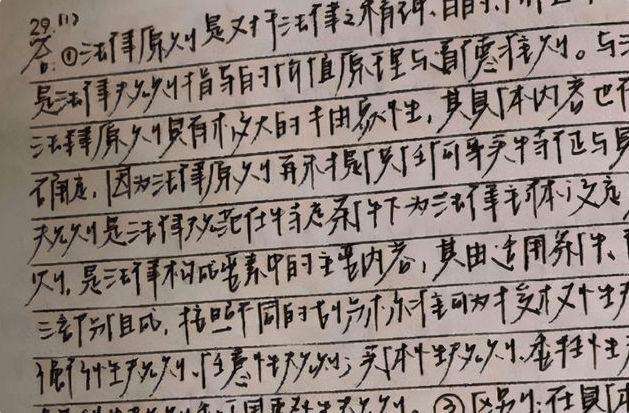 29.(1)
答:①法律原则是对于法律之有理、目的、
是法律规则指导目的价值原理与道德准则。与法
法律原则具有极大的抽象性,其具体内容也不
不确定,因为法律原则并不是只任何事实特征与具
规则是法律规范在特定条件下为法律主体设定
则,是法律构成要素中的主要内容,其由适用条件、
三部分组成,按照不同的划分标准可为授权性
强行性规则、任意性规则;实体性规则、委任性
②区别:在具体